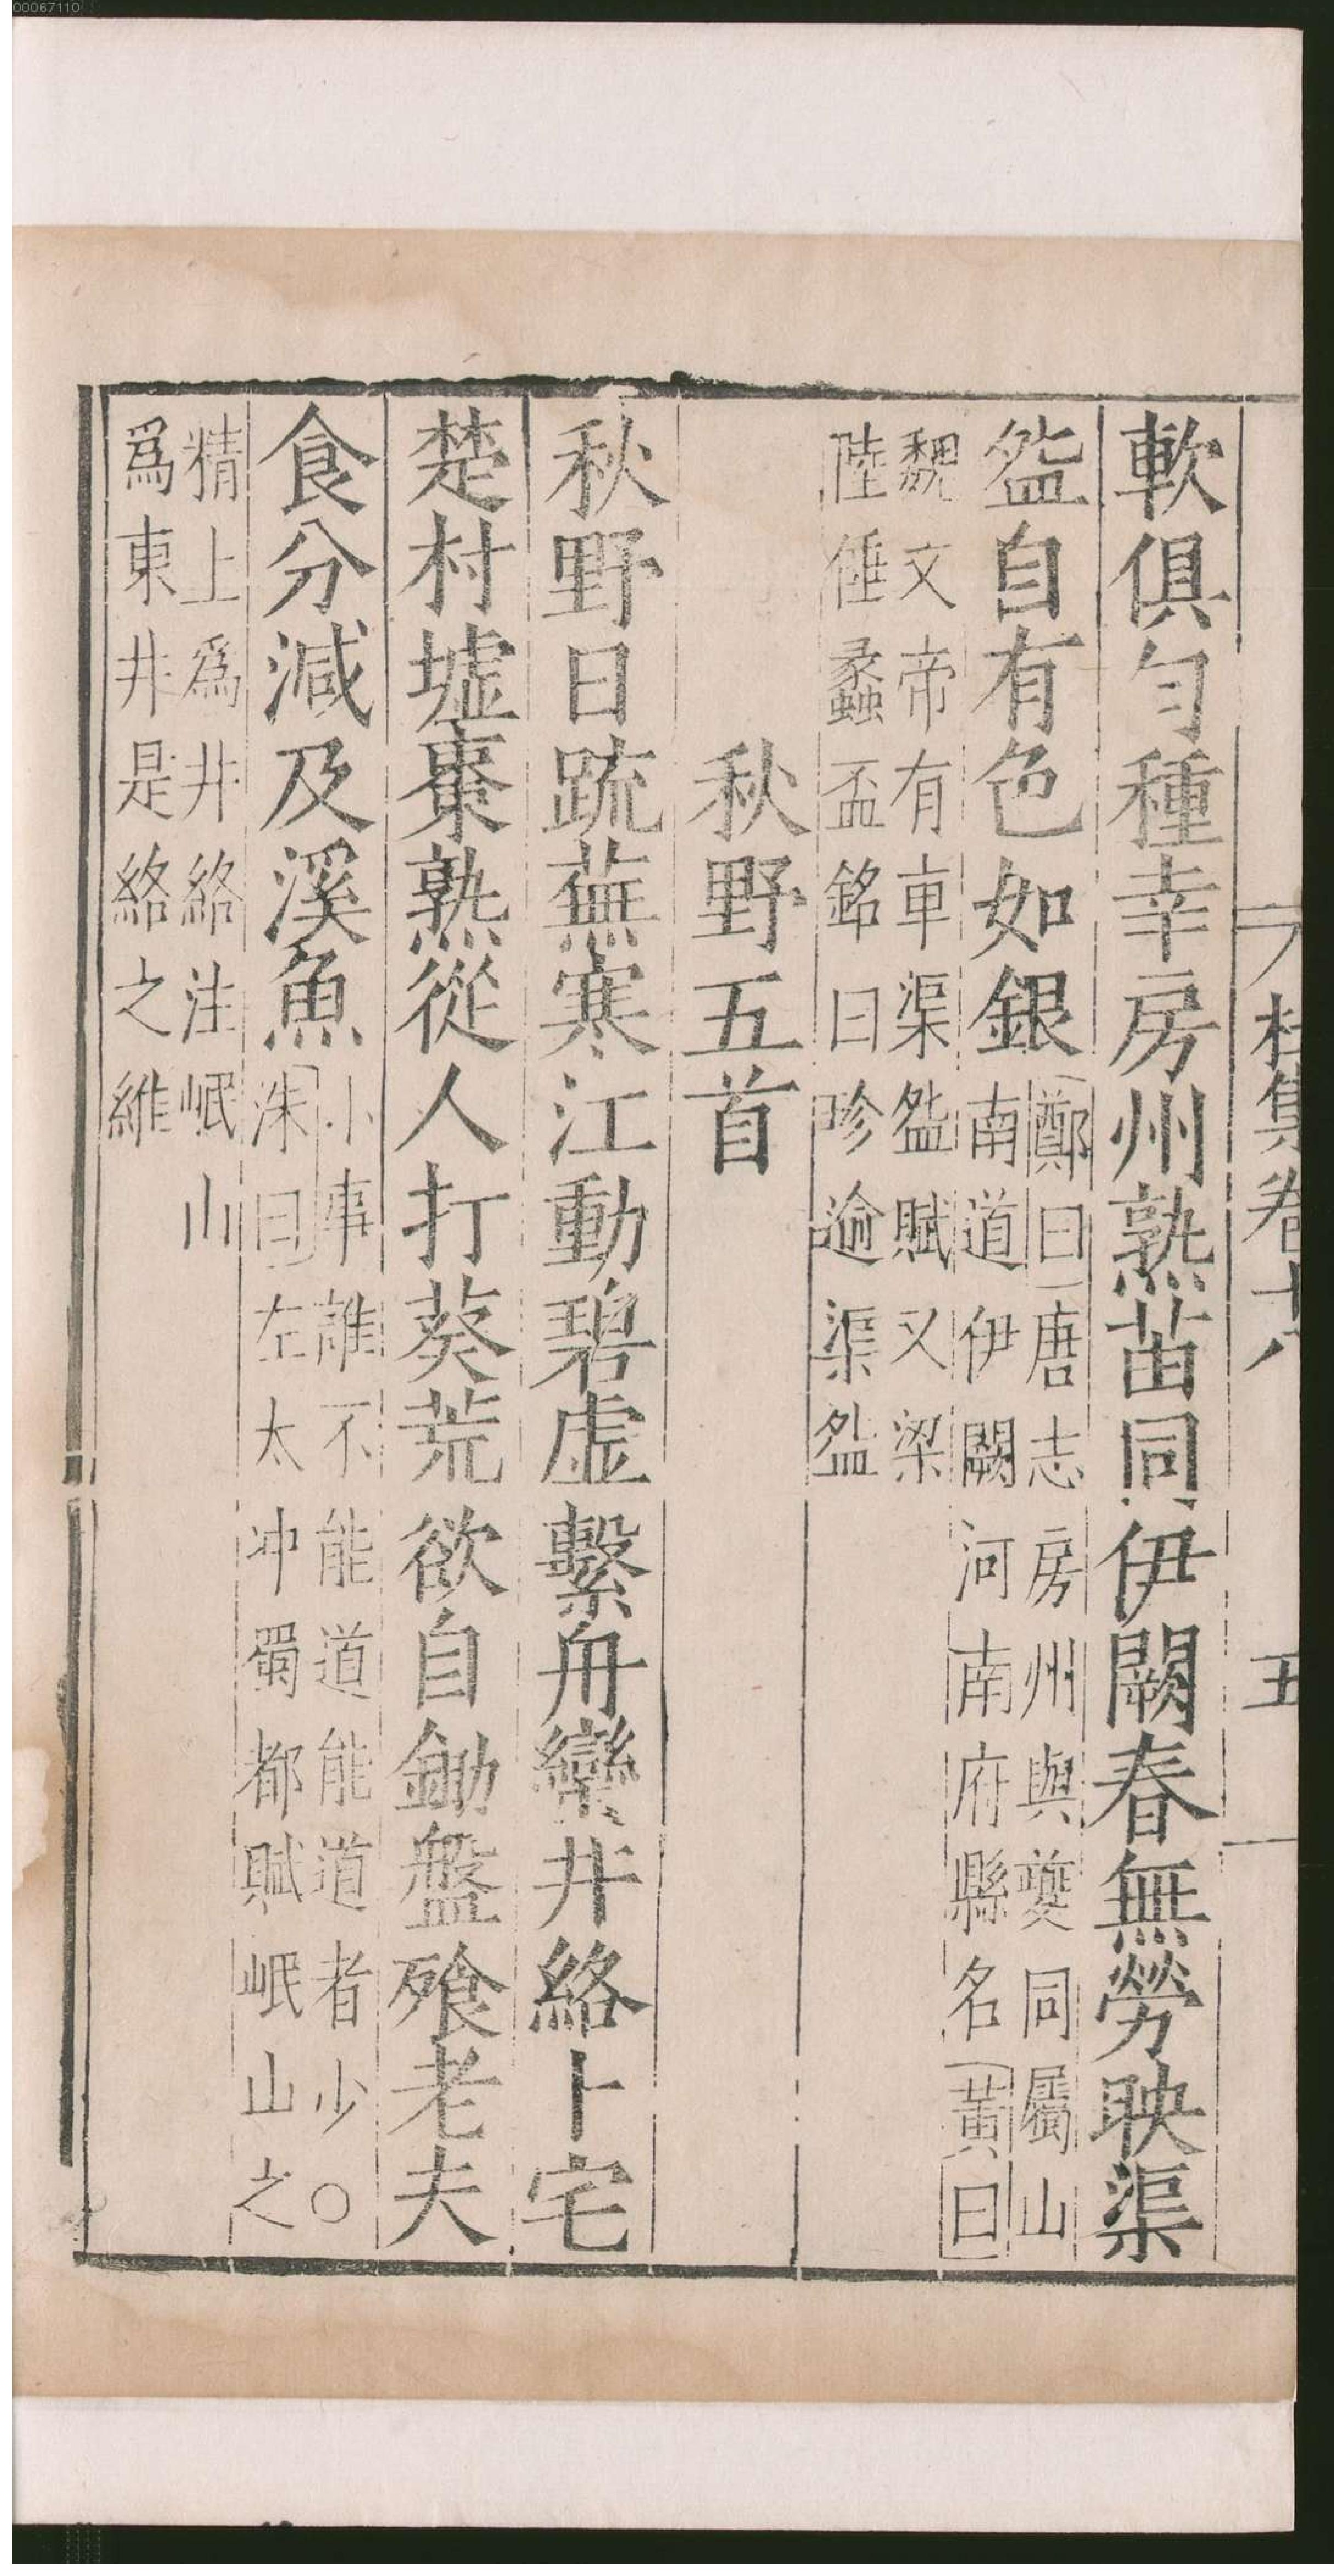 00067110
杜集卷十八 五
軟俱勻種幸房州熟苗同伊闕春無勞映渠
盌自有色如銀
鄭曰唐志房州與夔同屬山
南道伊闕河南府縣名黃曰
魏文帝有車渠盌賦又梁
陸倕蠡盃銘曰珍逾渠盌
秋野五首
秋野日䟽蕪寒江動碧虛繫舟蠻井絡卜宅
楚村墟棗熟從人打葵荒欲自鋤盤飱老夫
食分減及溪魚
小事誰不能道能道者少○
洙曰左太冲蜀都賦岷山之
精上爲井絡注岷山
爲東井是絡之維